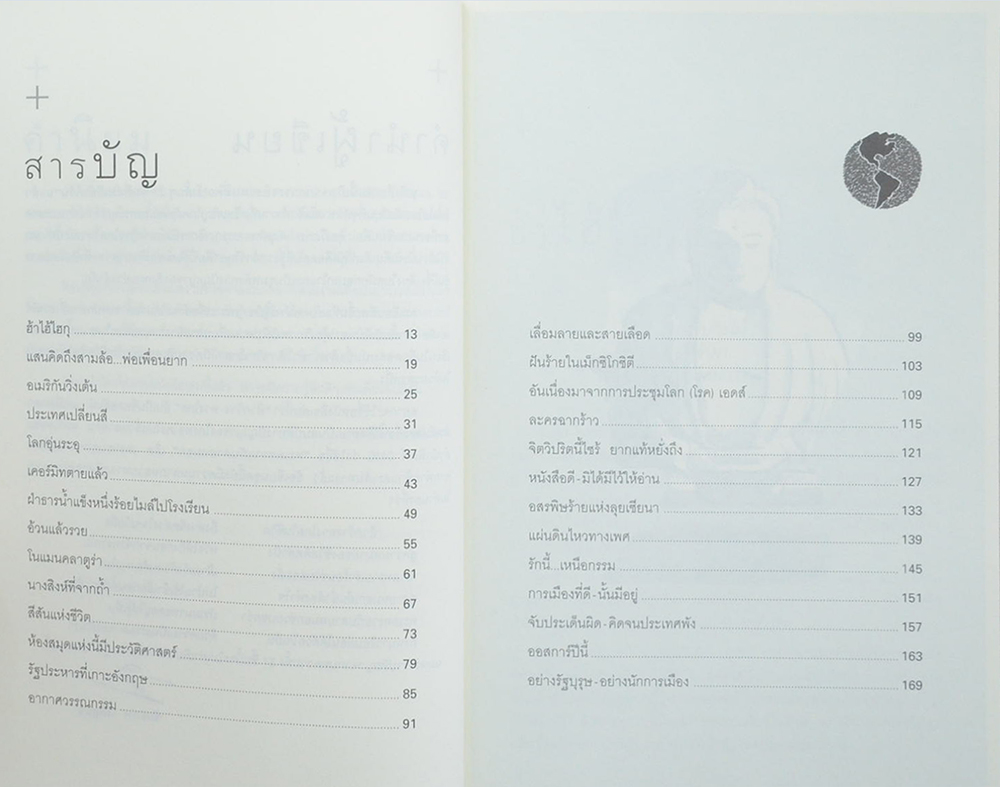 สารบัญ
ฮ้าไฮ้ไฮกุ 13
แสนคิดถึงสามล้อ...พ่อเพื่อนยาก 19
อเมริกันวิ่งเต้น 25
ประเทศเปลี่ยนสี 31
โลกอุ่นระอุ 37
เคอร์มิทตายแล้ว 43
ฝ่าธารน้ำแข็งหนึ่งร้อยไมล์ไปโรงเรียน 49
อ้วนแล้วรวย 55
โนแมนคลาตูร่า 61
นางสิงห์ที่จากถ้ำ 67
สีสันแห่งชีวิต 73
ห้องสมุดแห่งนี้มีประวัติศาสตร์ 79
รัฐประหารที่เกาะอังกฤษ 85
อากาศวรรณกรรม 91
เลื่อมลายและสายเลือด 99
ฝันร้ายในเม็กซิโกซิตี 103
อันเนื่องมาจากการประชุมโลก (โรค) เอดส์ 109
ละครฉากร้าว 115
จิตวิปริตนี้ไซร้ ยากแท้หยั่งถึง 121
หนังสือดี-มิได้มีไว้ให้อ่าน 127
อสรพิษร้ายแห่งลุยเซียนา 133
แผ่นดินไหวทางเพศ 139
รักนี้...เหนือกรรม 145
การเมืองที่ดี-นั้นมีอยู่ 151
จับประเด็นผิด-คิดจนประเทศพัง 157
ออสการ์ปีนี้ 163
อย่างรัฐบุรุษ-อย่างนักการเมือง 169